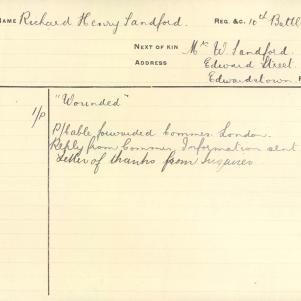 NAME Richard Henry Sandford. REG. &C. 10th Battl
NEXT OF KIN Mr W. Sandford.
ADDRESS Edward Street.
Edwardstown
"Wounded"
1/P P/table forwarded Commer London.
Reply from Commer Information sent
Letter of thanks from inquirer